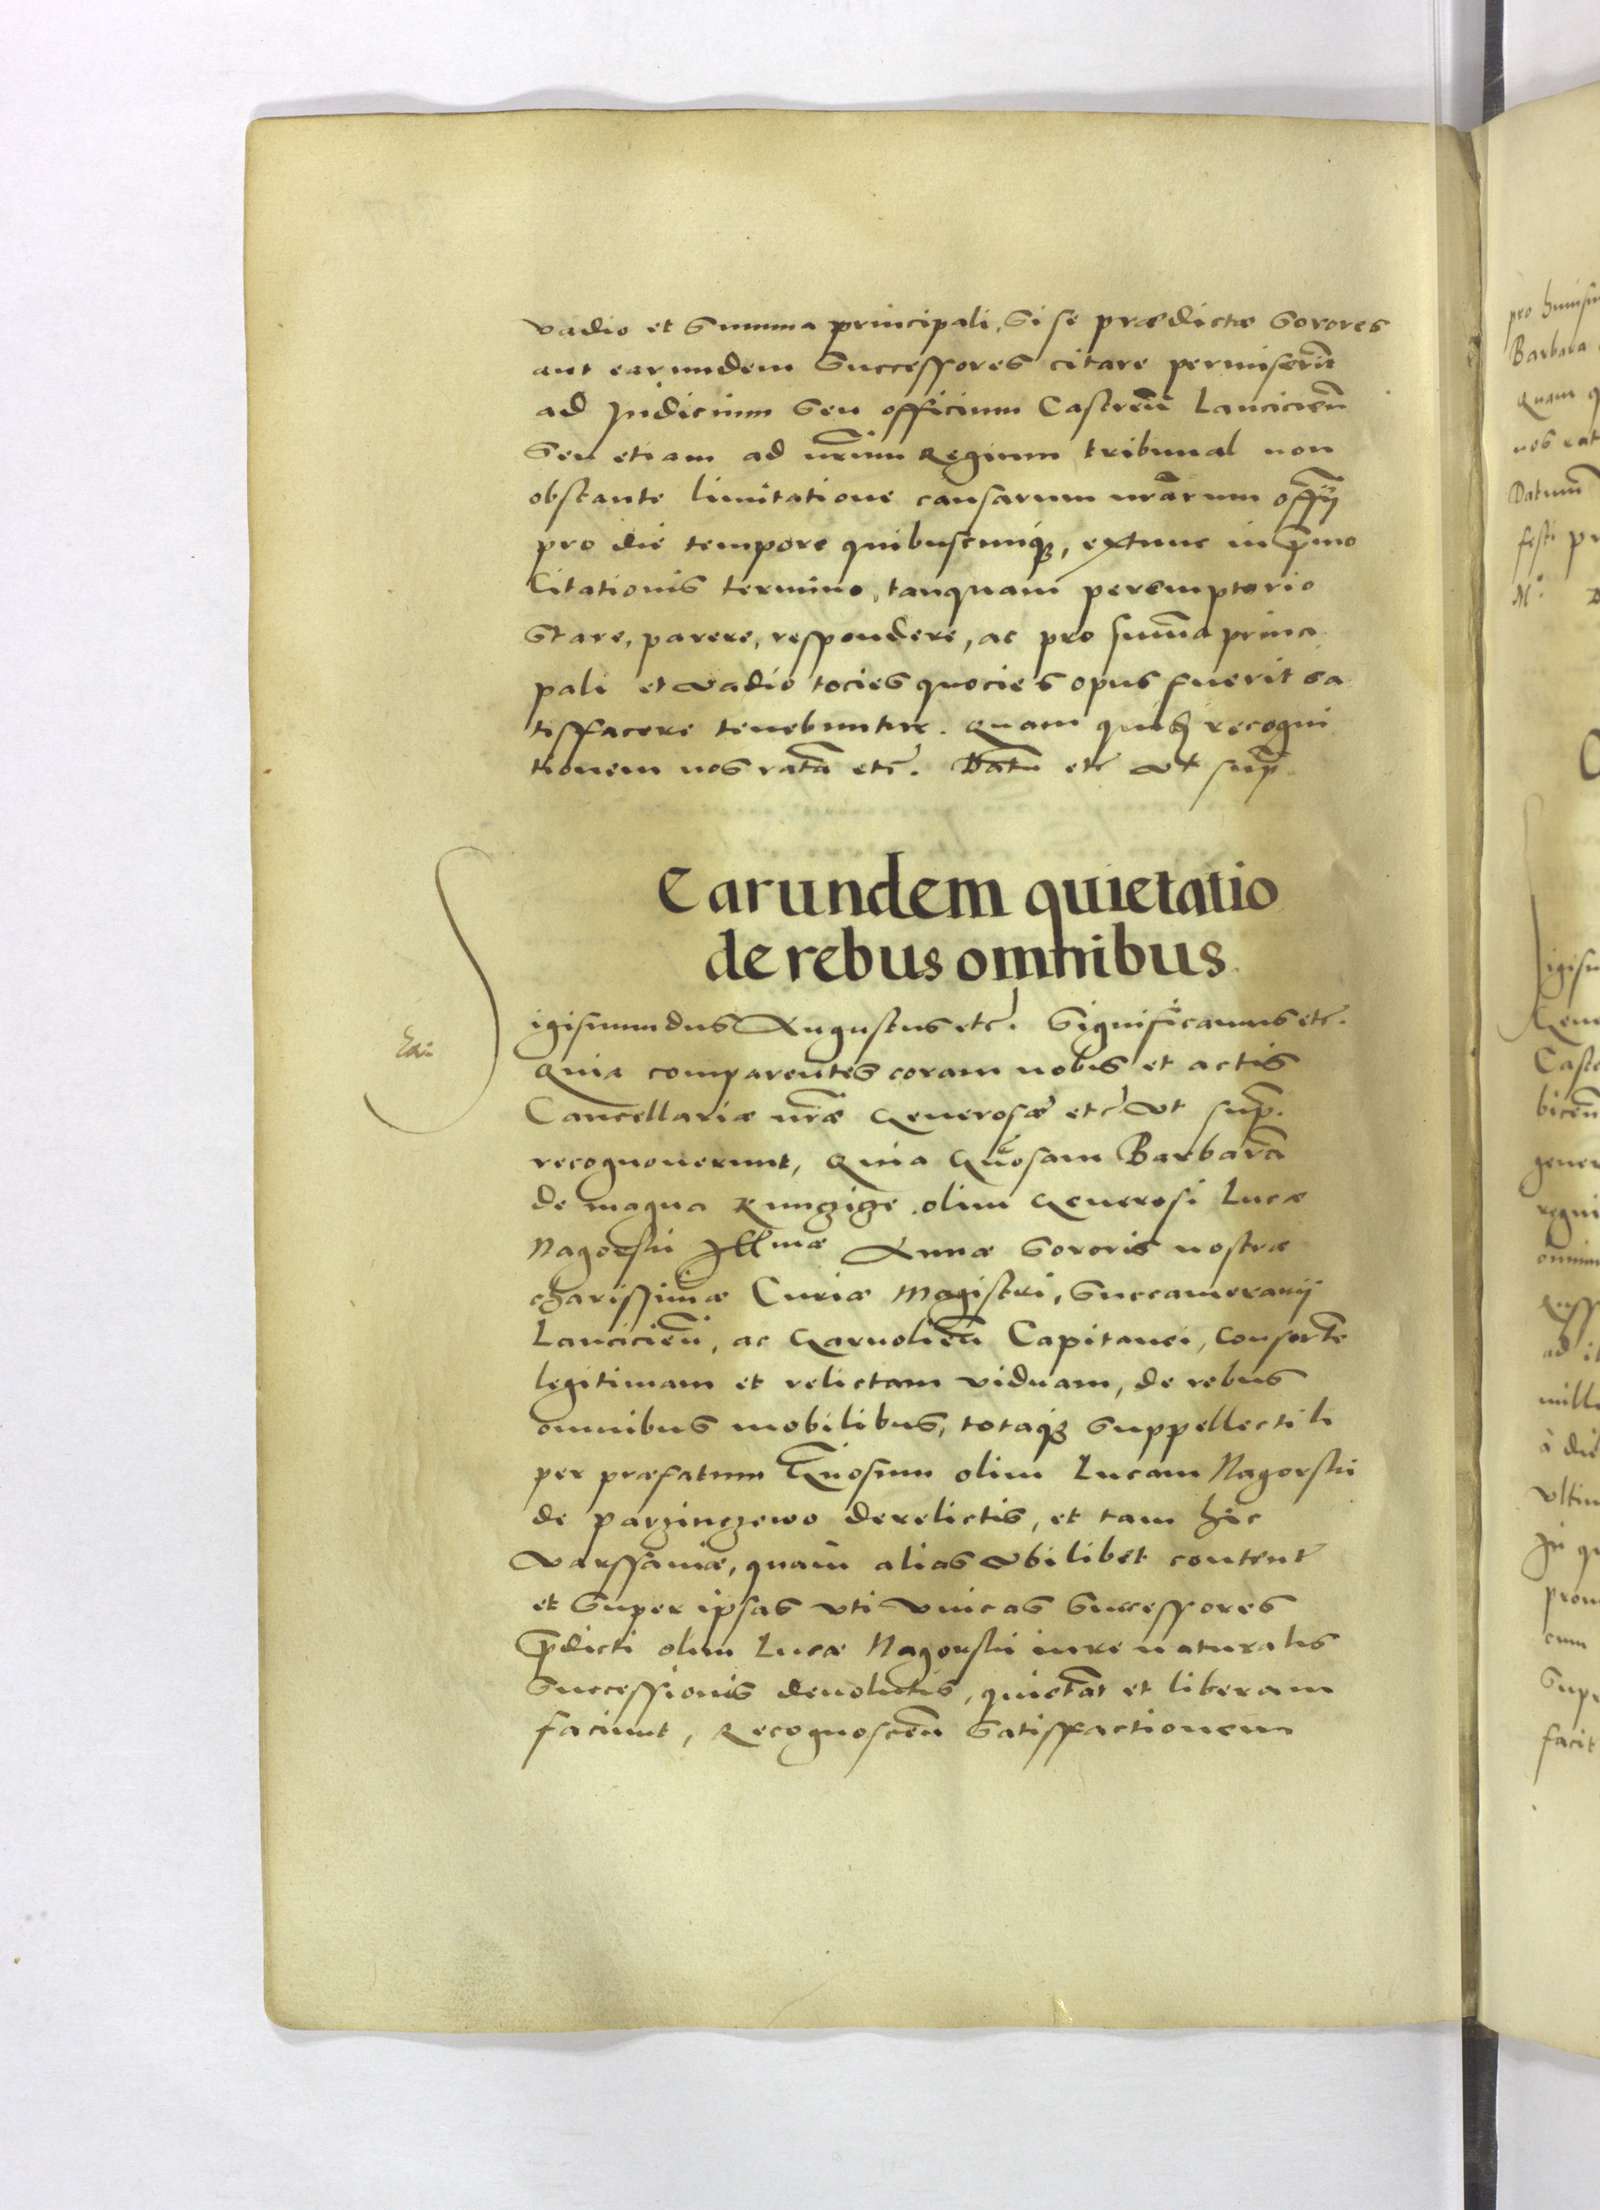 vadio et Summa principali, Si se prædictæ Sorores
aut earundem Successores citare permiserīt
ad Judicium Seu officium Castreñ Lancicieñ
Seu etiam ad nr̄um Regium tribunal non
obstante limitatione causarum nrārum offīj
pro die tempore quibuscunq3, extunc in p̄mo
Citationis termino, tanquam peremptorio
Stare, parere, respondere, ac pro sum̄a princi
pali et vadio tocies quocies opus fuerit sa
tisffacere tenebuntur. Quam quidē recogni
tionem nos ratā etc̃. Datū etc̃ vt sup̄
Earundem quietatio
de rebus omnibus
Sigismundus Augustus etc̃. Significamus etc̃.
Quia comparentes coram nobis et actis
Cancellariæ nr̄æ Generosæ etc̃ vt sup̄.
recognouerunt, Quia Gn̄osam Barbarā
de magna olim Generosi Lucæ
Nagorski Illmæ Annæ Sororis nostræ
charissimæ Curiæ Magistri, Succamerarij
Lancicieñ, ac Capitanei, Consortē
legitimam et relictam viduam, de rebus
omnibus mobilibus, totaq3 Suppellectili
per præfatum Gn̄osum olim Lucam Nagorski
de parzinczewo derelictis, et tam hic
Varssauiæ, quam alias vbilibet content̃
et Super ipsas vti vnicas Successores
p̄dicti olim Lucæ Nagorski iure naturalis
Successionis deuolutis, quietāt et liberam
faciunt, Recognosceñ Satisffactionem
pro
Barbara
Quam
nos rat
Datum
festi
igisu
Gene
Cast
biceñ
gener
regni
omni
ad
mille
à die
vltim
cum
Supe
facit